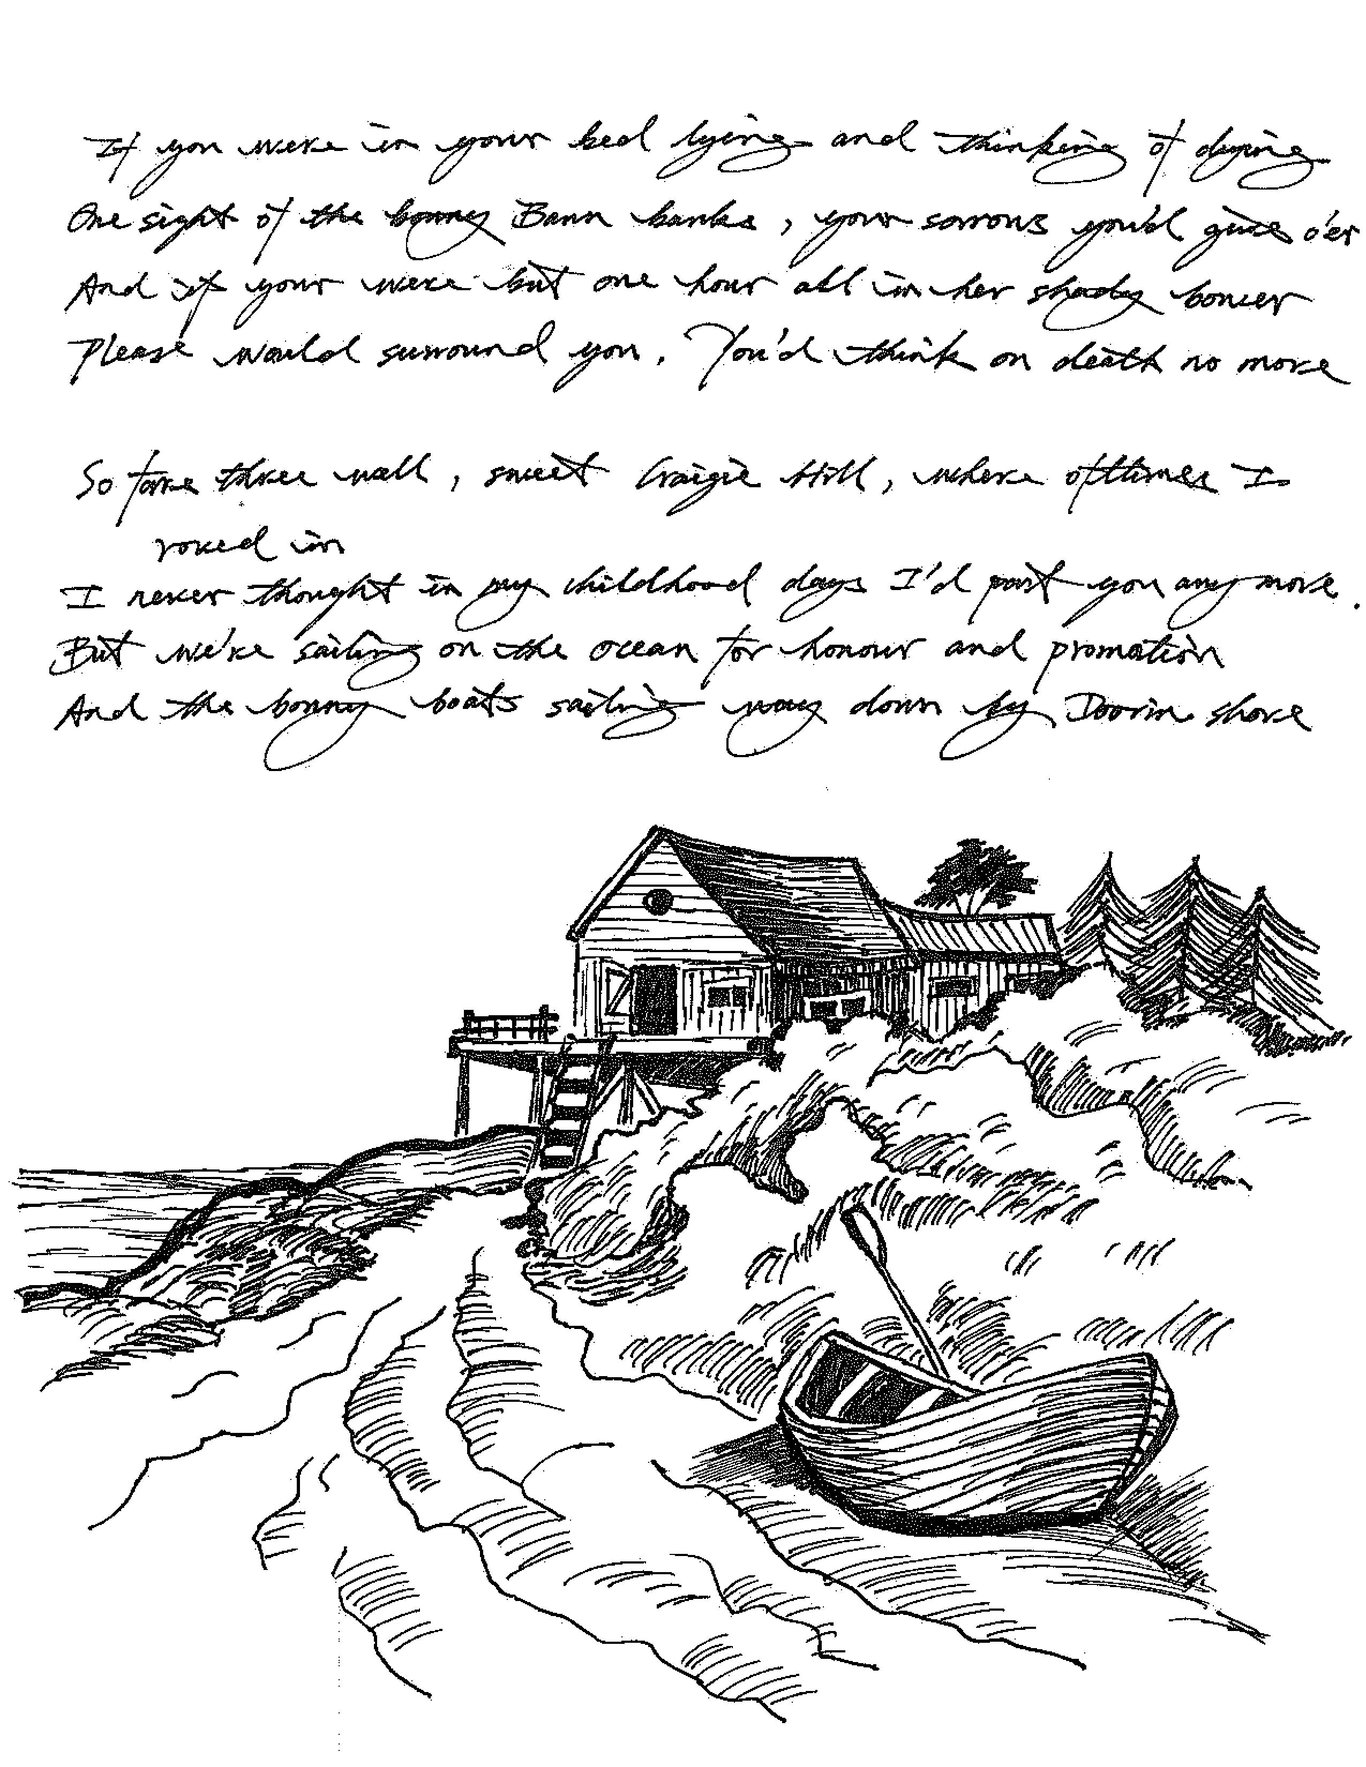 If you were in your bed lying and thinking of dying
One sight of the bonny Bann banks, your sorrows you'd give o'er
And if your were but one hour all in her shady bower
Please would surround you. You'd think on death no more
So fare thee well, sweet Craigie Hill, where ofttimes I
roved in
I never thought in my childhood days I'd part you any more.
But we're sailing on the ocean for honour and promotion
And the bonny boats sailing way down by Doorin shore